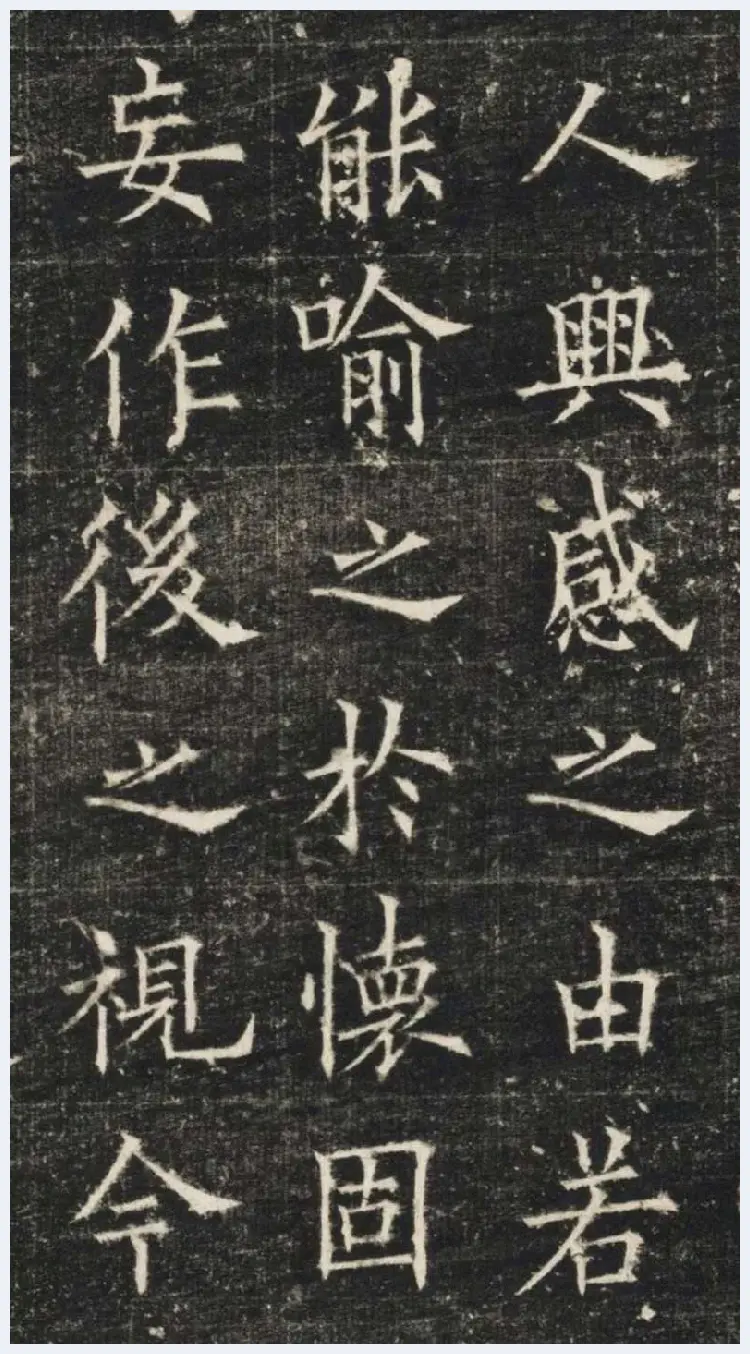 人興感之由若
能喻之於懷固
妄作後之視今